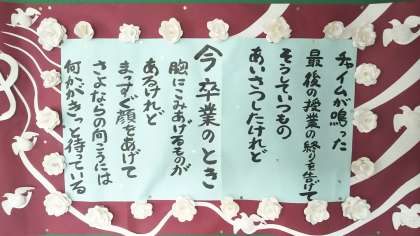 チャイムが鳴った
最後の授業の終りを告げて
そっといつもの
あいさつしたけれど
今卒業のとき
胸にこみあげるものが
あるけれど
まっすぐ顔をあげて
さよならの向こうには
何かがきっと待っている